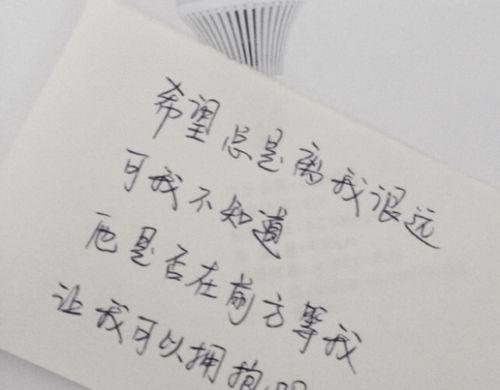 希望总是离我很远
可我不知道
它是否在前方等我
让我可以拥抱